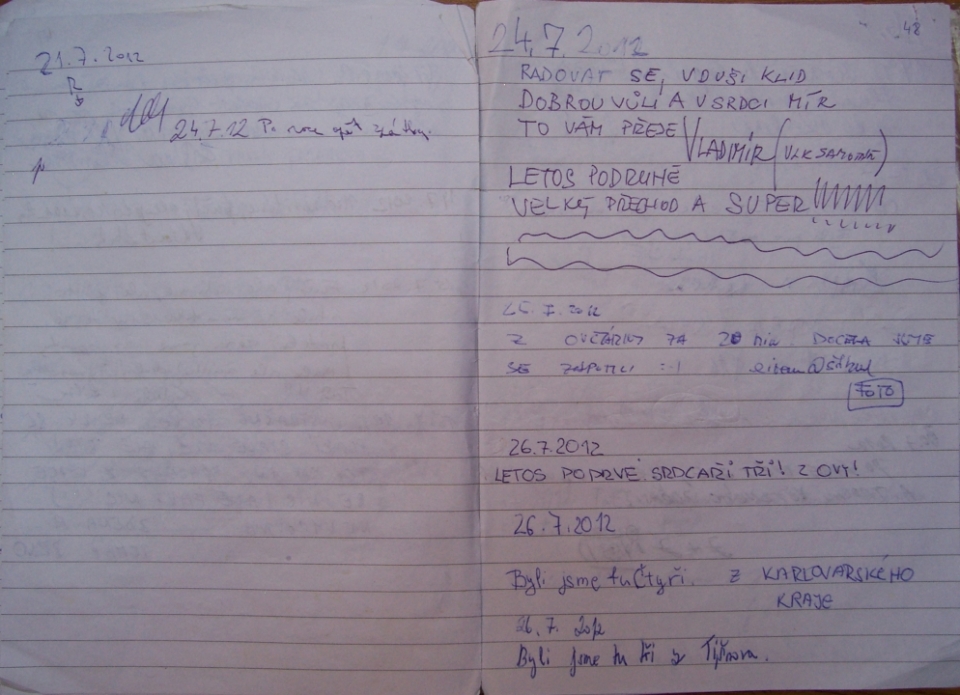 21.7.2012
24.7.12 Po roce opět zpátky.
48
24.7.2012
RADOVAT SE, V DUŠI KLID
DOBROU VŮLI A V SRDCI MÍR
TO VÁM PŘEJE VLADIMÍR (VLK SAMOTÁŘ)
LETOS PODRUHÉ
VELKÝ PŘECHOD A SUPER
2012
Z OVČÁRNY ZA 20 min. DOCELA JSME
SE ZAPOTILI :-)
FOTO
26.7.2012
LETOS POPRVÉ SRDCAŘI TŘI! Z OVY!
26.7.2012
Byli jsme tu čtyři. Z KARLOVARSKÉHO
KRAJE
26.7.2012
Byli jsme tu tři z Tišnova.